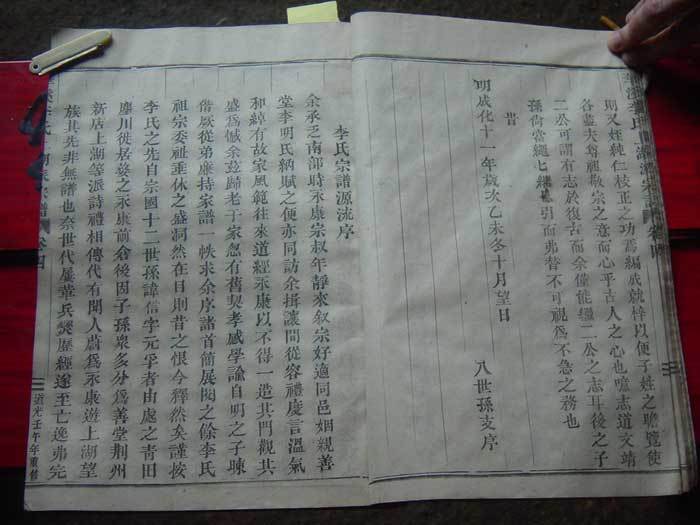 則又姪純仁校正之功焉編成就梓以便子姓之瞻覽使
各盡夫尊祖敬宗之意而心乎古人之心也噫志道文靖
二公可謂有志於復古而余僅能繼二公之志耳後之子
孫尚當繩七繼引而弗替不可視為不急之務也
昔
明成化十一年歲次乙未冬十月望日
八世孫支序
李氏宗譜源流序
余承乏南部時永康宗叔年靜來叙宗好適同邑姻親善
堂李明氏納賦之便亦同訪余揖讓間從容禮度言溫氣
和綽有故家風範往來道經永康以不得一造其門觀其
盛為憾余茲歸老于家忽有舊契孝感學諭自明之子暕
偕厥從弟廉持家譜一帙求余序諸首簡展閱之餘李氏
祖宗委祉垂休之盛洞然在目則昔之恨今釋然矣謹按
李氏之先自宗國十二世孫諱信字元孚者由處之青田
塵川徙居婺之永康前倉後因子孫衆多分為善堂荆州
新店上湖等派詩禮相傳代有聞人蔚為永康遊上湖望
族其先非無譜也奈世代屢革兵燹歷經遂至亡逸弗完
道光壬午年重修
卷四